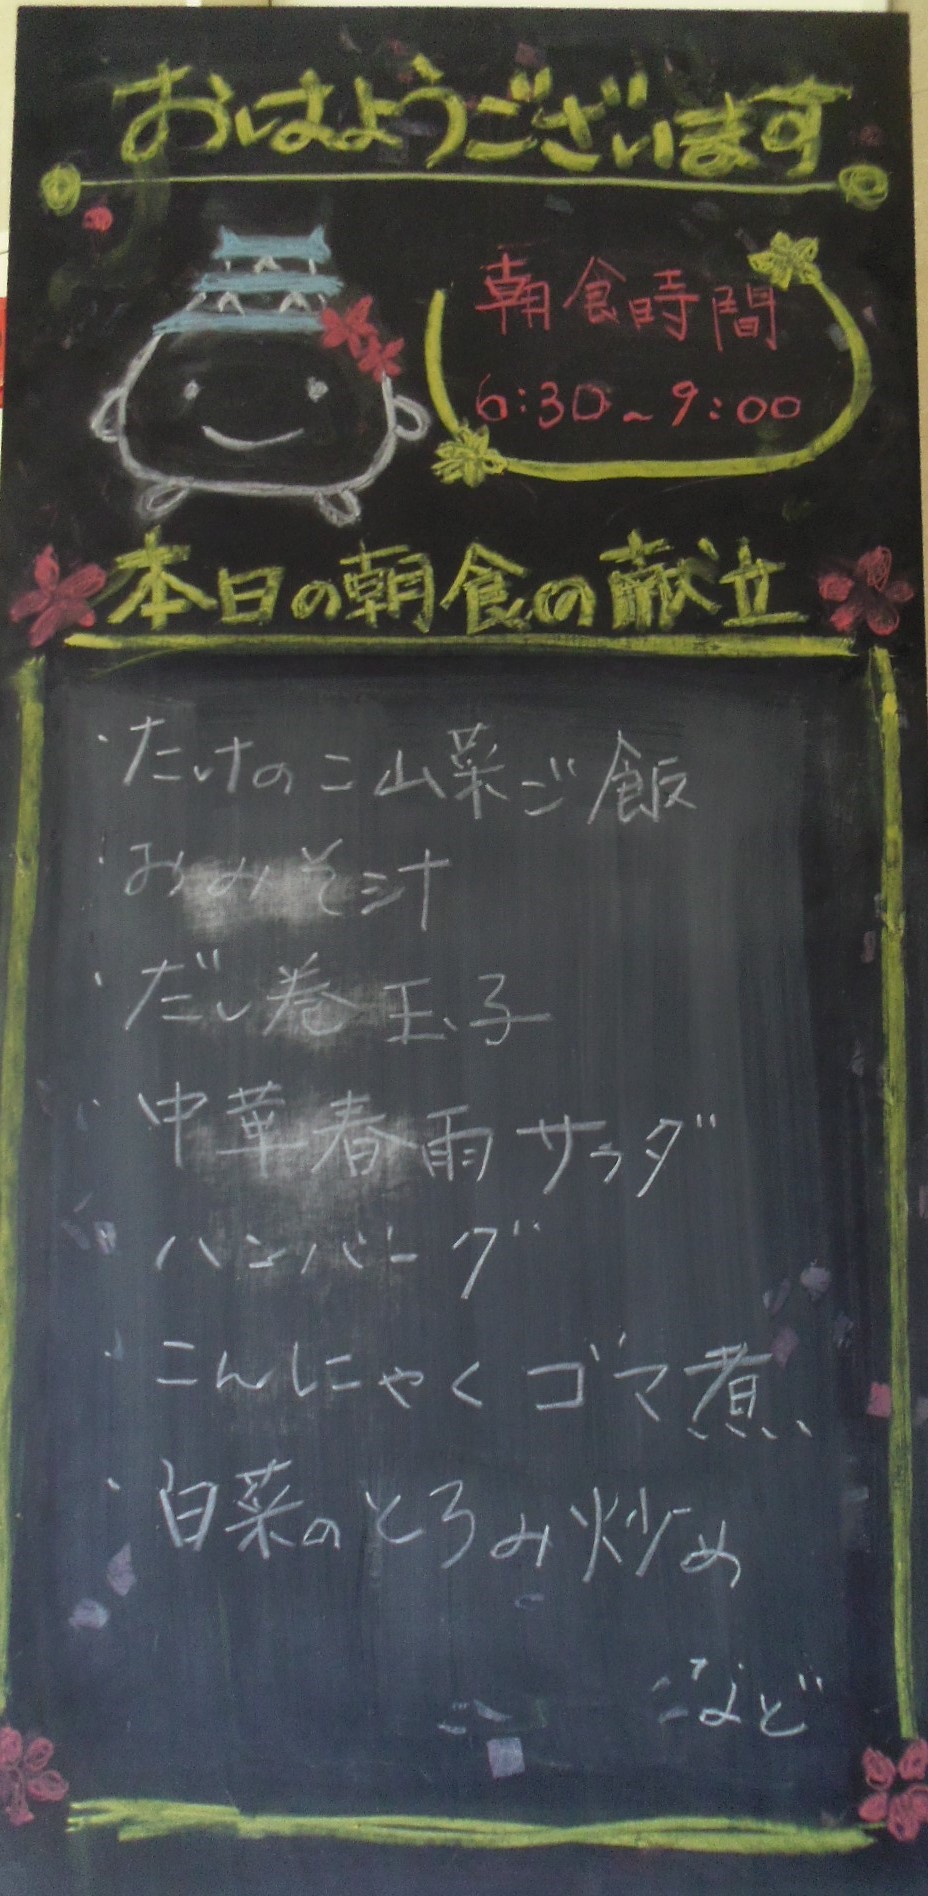 おはようございます
朝食時間
6:30～9:00
本日の朝食の献立
・たけのこ山菜ご飯
・おみそ汁
・だし巻玉子
・中華春雨サラダ
・ハンバーグ
・こんにゃくゴマ煮
・白菜のとろみ炒め
など